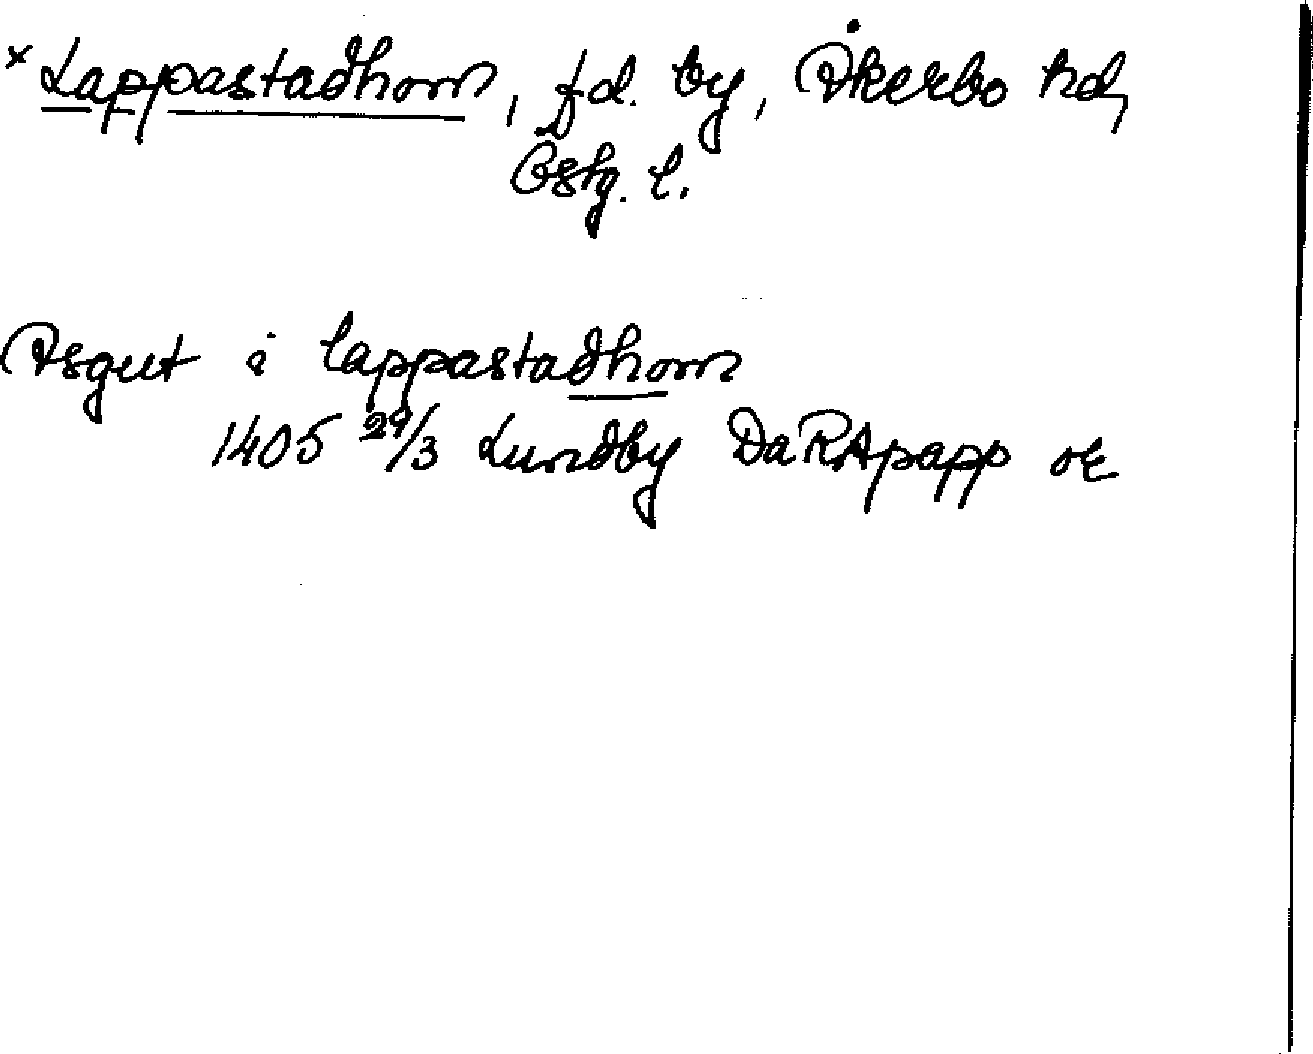 × Lappastadhom, fd. by, Åkerbo hd,
Östg. l.
Asgut i lappastadhom
1405 29/3 Lundby DaRApapp or